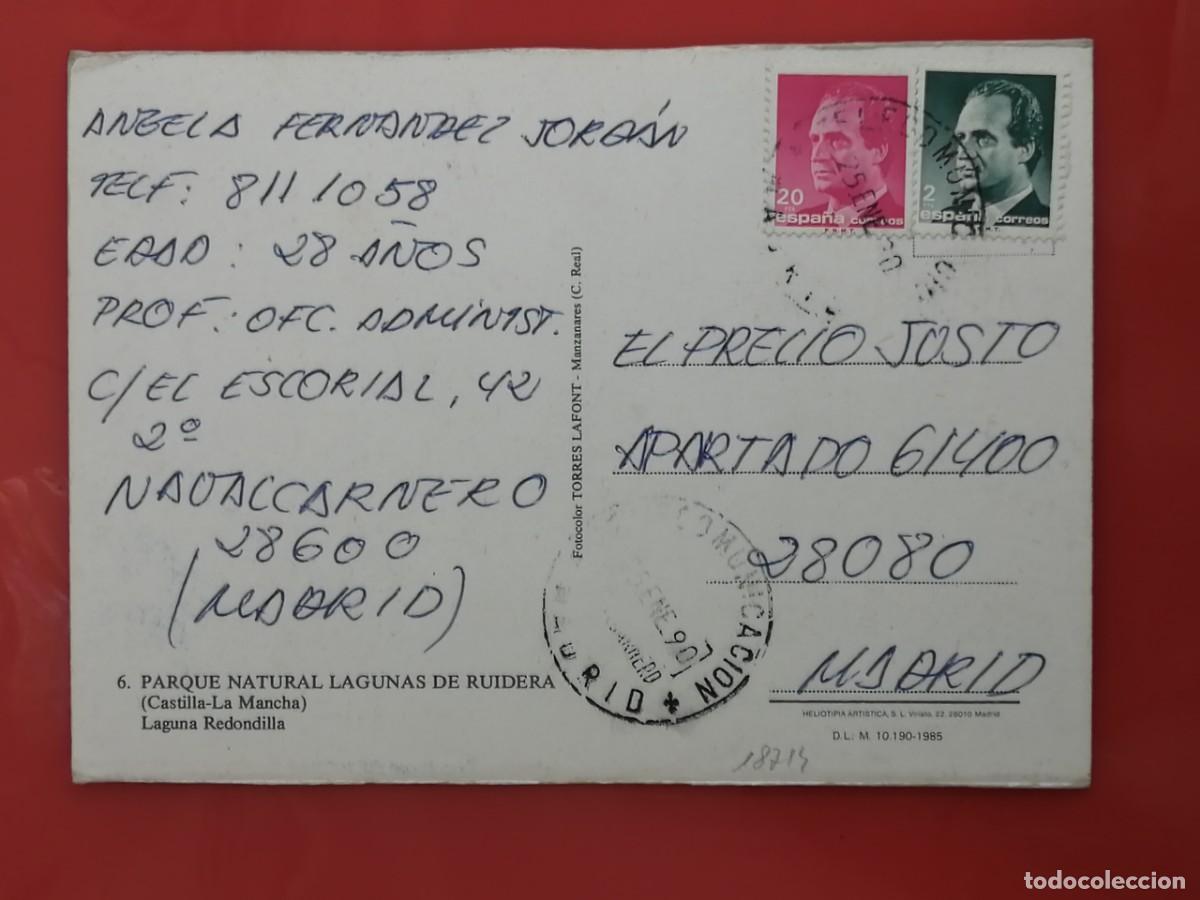 ANGELA FERNANDEZ JORDÁN
TELF: 8111058
EDAD: 28 AÑOS
PROF: OFC. ADMINIST.
C/ EL ESCORIAL, 42
2º
NAVALCARNERO
28600
(MADRID)
6. PARQUE NATURAL LAGUNAS DE RUIDERA
(Castilla-La Mancha)
Laguna Redondilla
Fotocolor TORRES LAFONT - Manzanares (C. Real)
20
españa correos
F.N.M.T.
2
españa correos
25 ENE 90
EL PRECIO JUSTO
APARTADO 61400
28080
MADRID
COMUNICACION
ENE 90
MADRID
HELIOTIPIA ARTISTICA, S. L. Viriato, 22. 28010 Madrid
D.L.: M. 10.190-1985
18714
todocoleccion